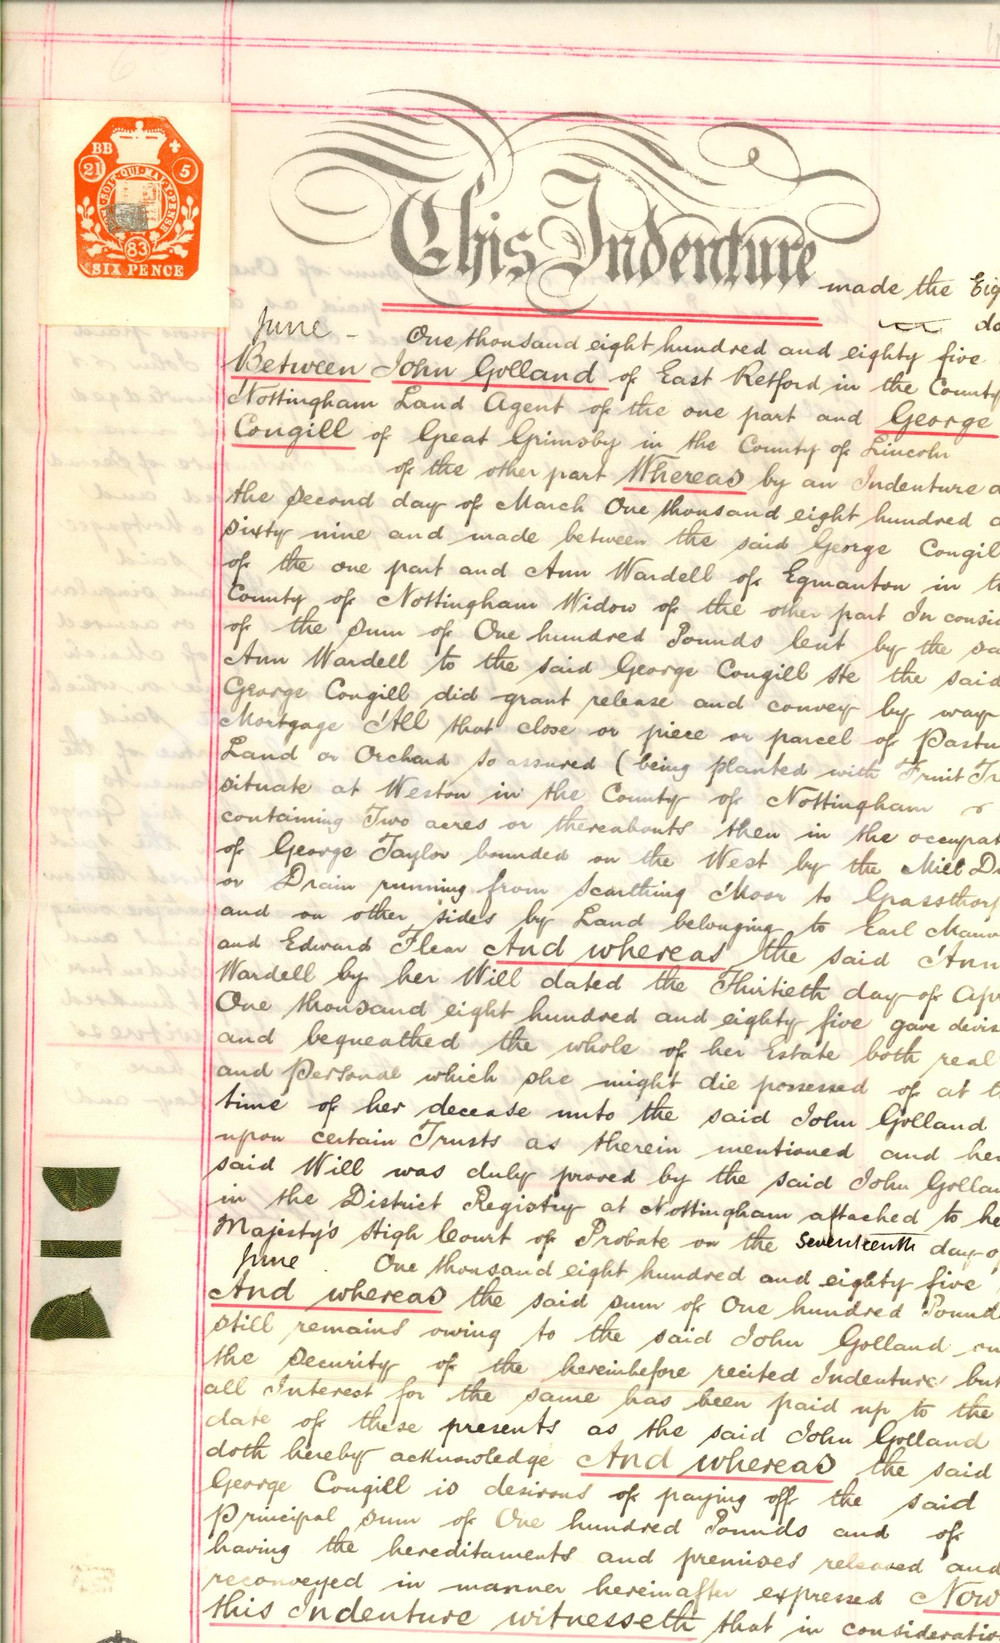 BB
21 5
SOIT·QUI·MAL·Y·PENSE
83
SIX PENCE
This Indenture made the Eig
June - One thousand eight hundred and eighty five
Between John Golland of East Retford in the County
Nottingham Land Agent of the one part and George
Cougill of Great Grimsby in the County of Lincoln
of the other part Whereas by an Indenture
the second day of March One thousand eight hundred a
sixty nine and made between the said George Cougil
of the one part and Ann Wardell of Egmanton in t
County of Nottingham Widow of the other part In consi
of the sum of One hundred Pounds lent by the sa
Ann Wardell to the said George Cougill He the said
George Cougill did grant release and convey by way
Mortgage All that close or piece or parcel of Pastu
Land or Orchard so assured (being planted with Fruit Tr
situate at Weston in the County of Nottingham
containing Two acres or thereabouts then in the occupat
of George Taylor bounded on the West by the Mill D
or Drain running from Scarthing Moor to Grassthorp
and on other sides by Land belonging to Earl Manv
and Edward Flear And whereas the said Ann
Wardell by her Will dated the Thirtieth day of Apr
One thousand eight hundred and eighty five gave devis
and bequeathed the whole of her Estate both real
and Personal which she might die possessed of at t
time of her decease unto the said John Golland
upon certain Trusts as therein mentioned and her
said Will was duly proved by the said John Gollan
in the District Registry at Nottingham attached to he
Majesty's High Court of Probate on the Seventeenth day o
June . One thousand eight hundred and eighty five
And whereas the said sum of One hundred Pound
still remains owing to the said John Golland on
the security of the hereinbefore recited Indenture but
all Interest for the same has been paid up to the
date of these presents as the said John Golland
doth hereby acknowledge And whereas the said
George Cougill is desirous of paying off the said
Principal sum of One hundred Pounds and of
having the hereditaments and premises released and
reconveyed in manner hereinafter expressed Now
this Indenture witnesseth that in consideratio